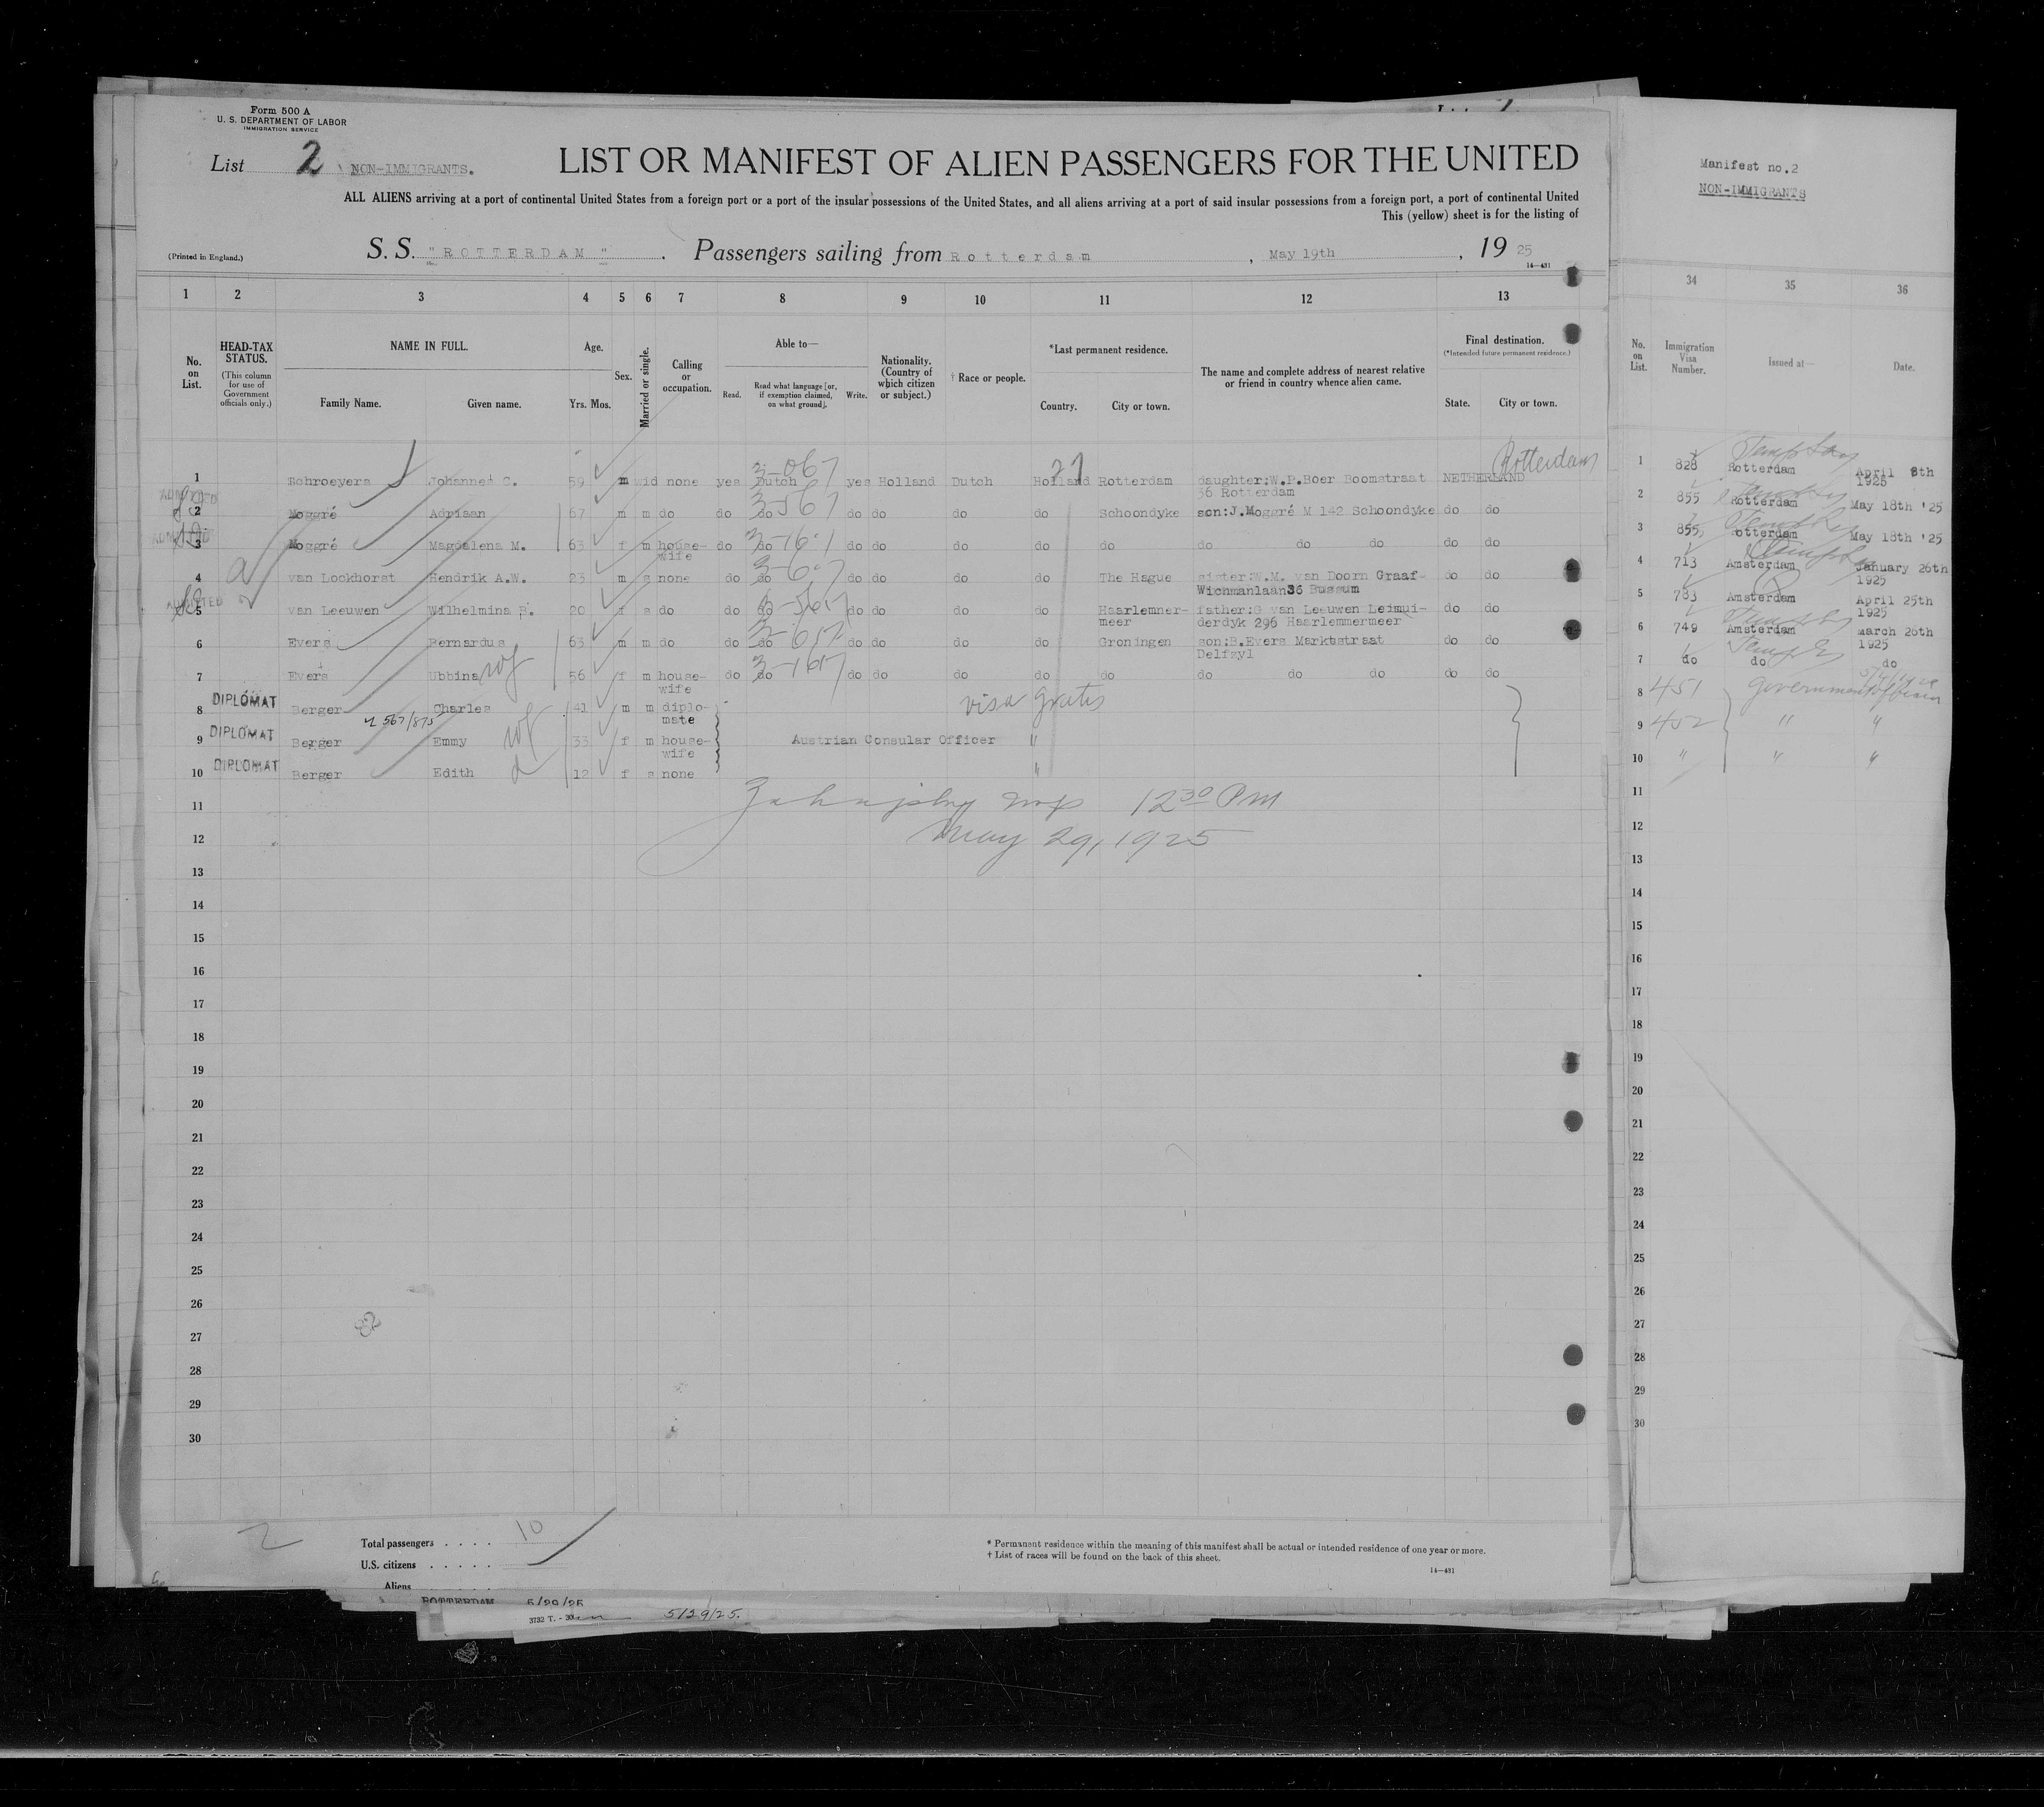 Form 500 A
U. S. DEPARTMENT OF LABOR
IMMIGRATION SERVICE
List 2 NON-IMMIGRANTS.
LIST OR MANIFEST OF ALIEN PASSENGERS FOR THE UNITED
ALL ALIENS arriving at a port of continental United States from a foreign port or a port of the insular possessions of the United States, and all aliens arriving at a port of said insular possessions from a foreign port, a port of continental United
This (yellow) sheet is for the listing of
(Printed in England.)
S. S. "ROTTERDAM". Passengers sailing from Rotterdam, May 19th, 19 25
14—431
1 2 3 4 5 6 7 8 9 10 11 12 13
No. on List.
HEAD-TAX STATUS.
(This column for use of Government officials only.)
NAME IN FULL.
Family Name. Given name.
Age.
Yrs. Mos.
Sex.
Married or single.
Calling or occupation.
Able to—
Read. Read what language [or, if exemption claimed, on what ground]. Write.
Nationality. (Country of which citizen or subject.)
† Race or people.
*Last permanent residence.
Country. City or town.
The name and complete address of nearest relative or friend in country whence alien came.
Final destination.
(*Intended future permanent residence.)
State. City or town.
27 Rotterdam
1 Schroeyers Johannes C. 59 m wid none yes Dutch yes Holland Dutch Holland Rotterdam daughter:W.P.Boer Boomstraat 36 Rotterdam NETHERLAND
ADMITTED
2 Moggré Adriaan 67 m m do do do do do do do Schoondyke son:J.Moggré M 142 Schoondyke do do
ADMITTED
3 Moggré Magdalena M. 63 f m house-wife do do do do do do do do do do do do
4 van Lookhorst Hendrik A.W. 23 m s none do do do do do do The Hague sister:W.M. van Doorn Graaf-Wichmanlaan36 Bussum do do
ADMITTED
5 van Leeuwen Wilhelmina P. 20 f s do do do do do do do Haarlemner-meer father:G van Leeuwen Leimui-derdyk 296 Haarlemmermeer do do
6 Evers Bernardus 63 m m do do do do do do do Groningen son:B.Evers Marktstraat Delfzyl do do
7 Evers Ubbina wf 56 f m house-wife do do do do do do do do do do do do
DIPLOMAT 8 Berger Charles 41 m m diplo-mate visa gratis
DIPLOMAT 9 Berger Emmy wf 33 f m house-wife Austrian Consular Officer "
DIPLOMAT 10 Berger Edith d 12 f s none "
11
12
12 30 PM
May 29, 1925
13
14
15
16
17
18
19
20
21
22
23
24
25
26
27
28
29
30
2
Total passengers . . . . 10
U.S. citizens . . . . .
Aliens
* Permanent residence within the meaning of this manifest shall be actual or intended residence of one year or more.
† List of races will be found on the back of this sheet.
14—431
ROTTERDAM 5/29/25
3732 T. - 30 5/29/25.
Manifest no.2
NON-IMMIGRANTS
34 35 36
No. on List.
Immigration Visa Number.
Issued at—
Date.
1 828 Rotterdam April 8th 1925
2 855 Rotterdam May 18th '25
3 855 Rotterdam May 18th '25
4 713 Amsterdam January 26th 1925
5 783 Amsterdam April 25th 1925
6 749 Amsterdam march 26th 1925
7 do do do
8 451 government officer
9 452 " "
10 " " "
11
12
13
14
15
16
17
18
19
20
21
22
23
24
25
26
27
28
29
30